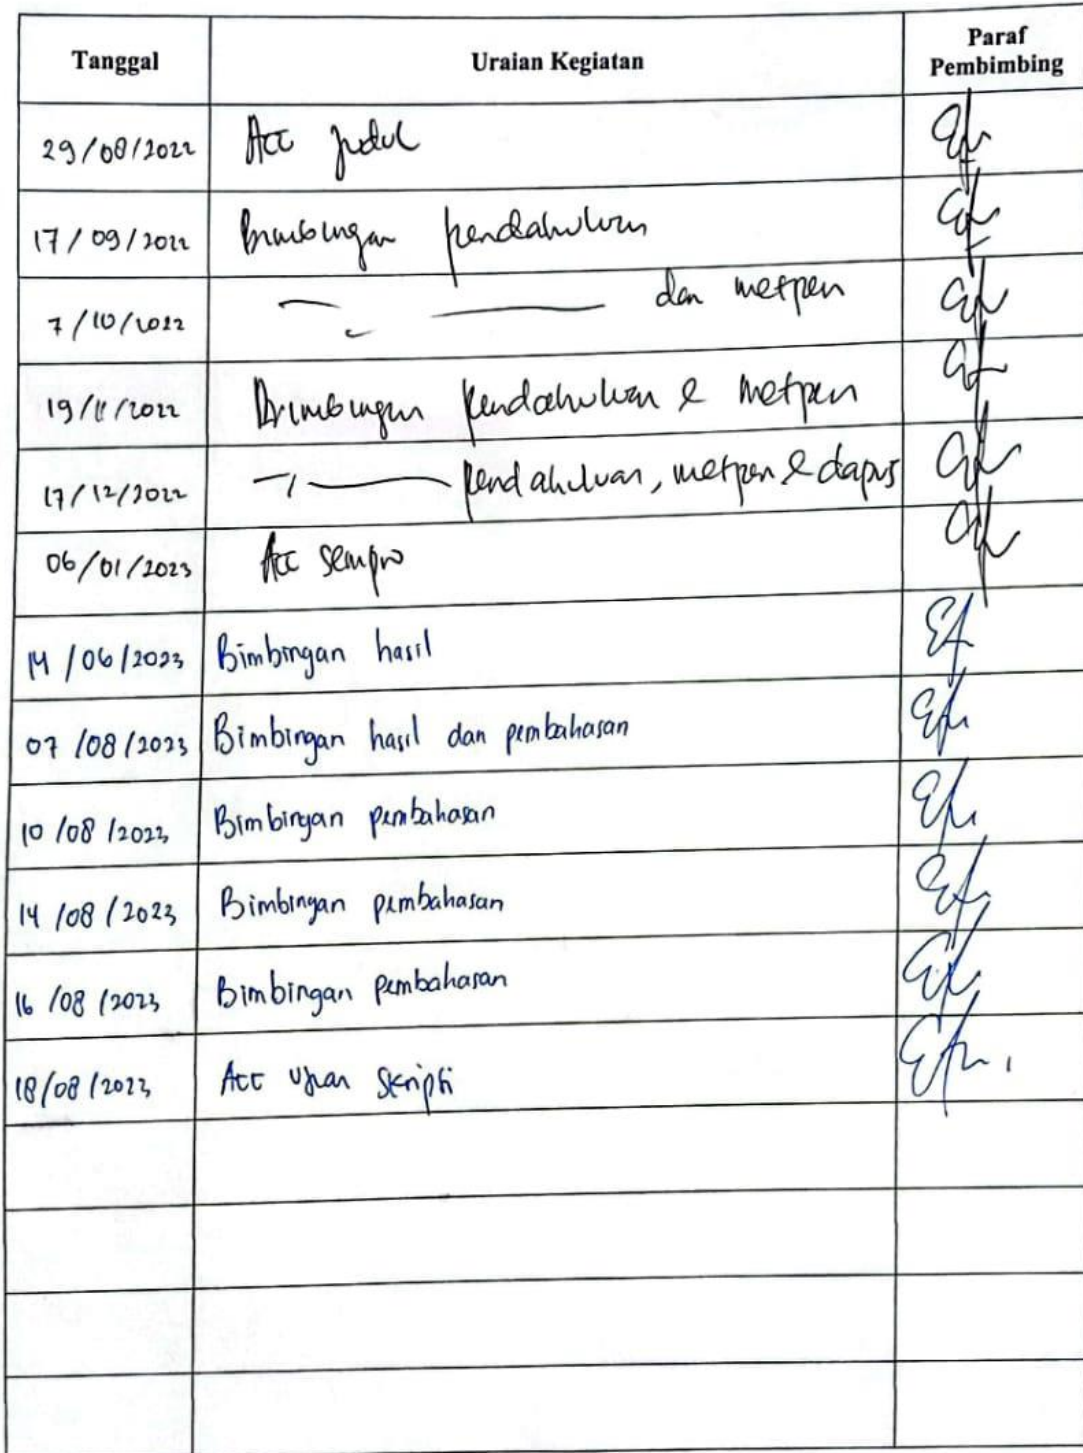 Tanggal Uraian Kegiatan Paraf
Pembimbing
29/08/2022 Acc judul
17/09/2022 Bimbingan pendahuluan
7/10/2022 dan metpen
19/11/2022 Bimbingan pendahuluan & metpen
17/12/2022 pendahuluan, metpen & dapus
06/01/2023 Acc sempro
14/06/2023 Bimbingan hasil
07/08/2023 Bimbingan hasil dan pembahasan
10/08/2023 Bimbingan pembahasan
14/08/2023 Bimbingan pembahasan
16/08/2023 Bimbingan pembahasan
18/08/2023 Acc ujian skripsi